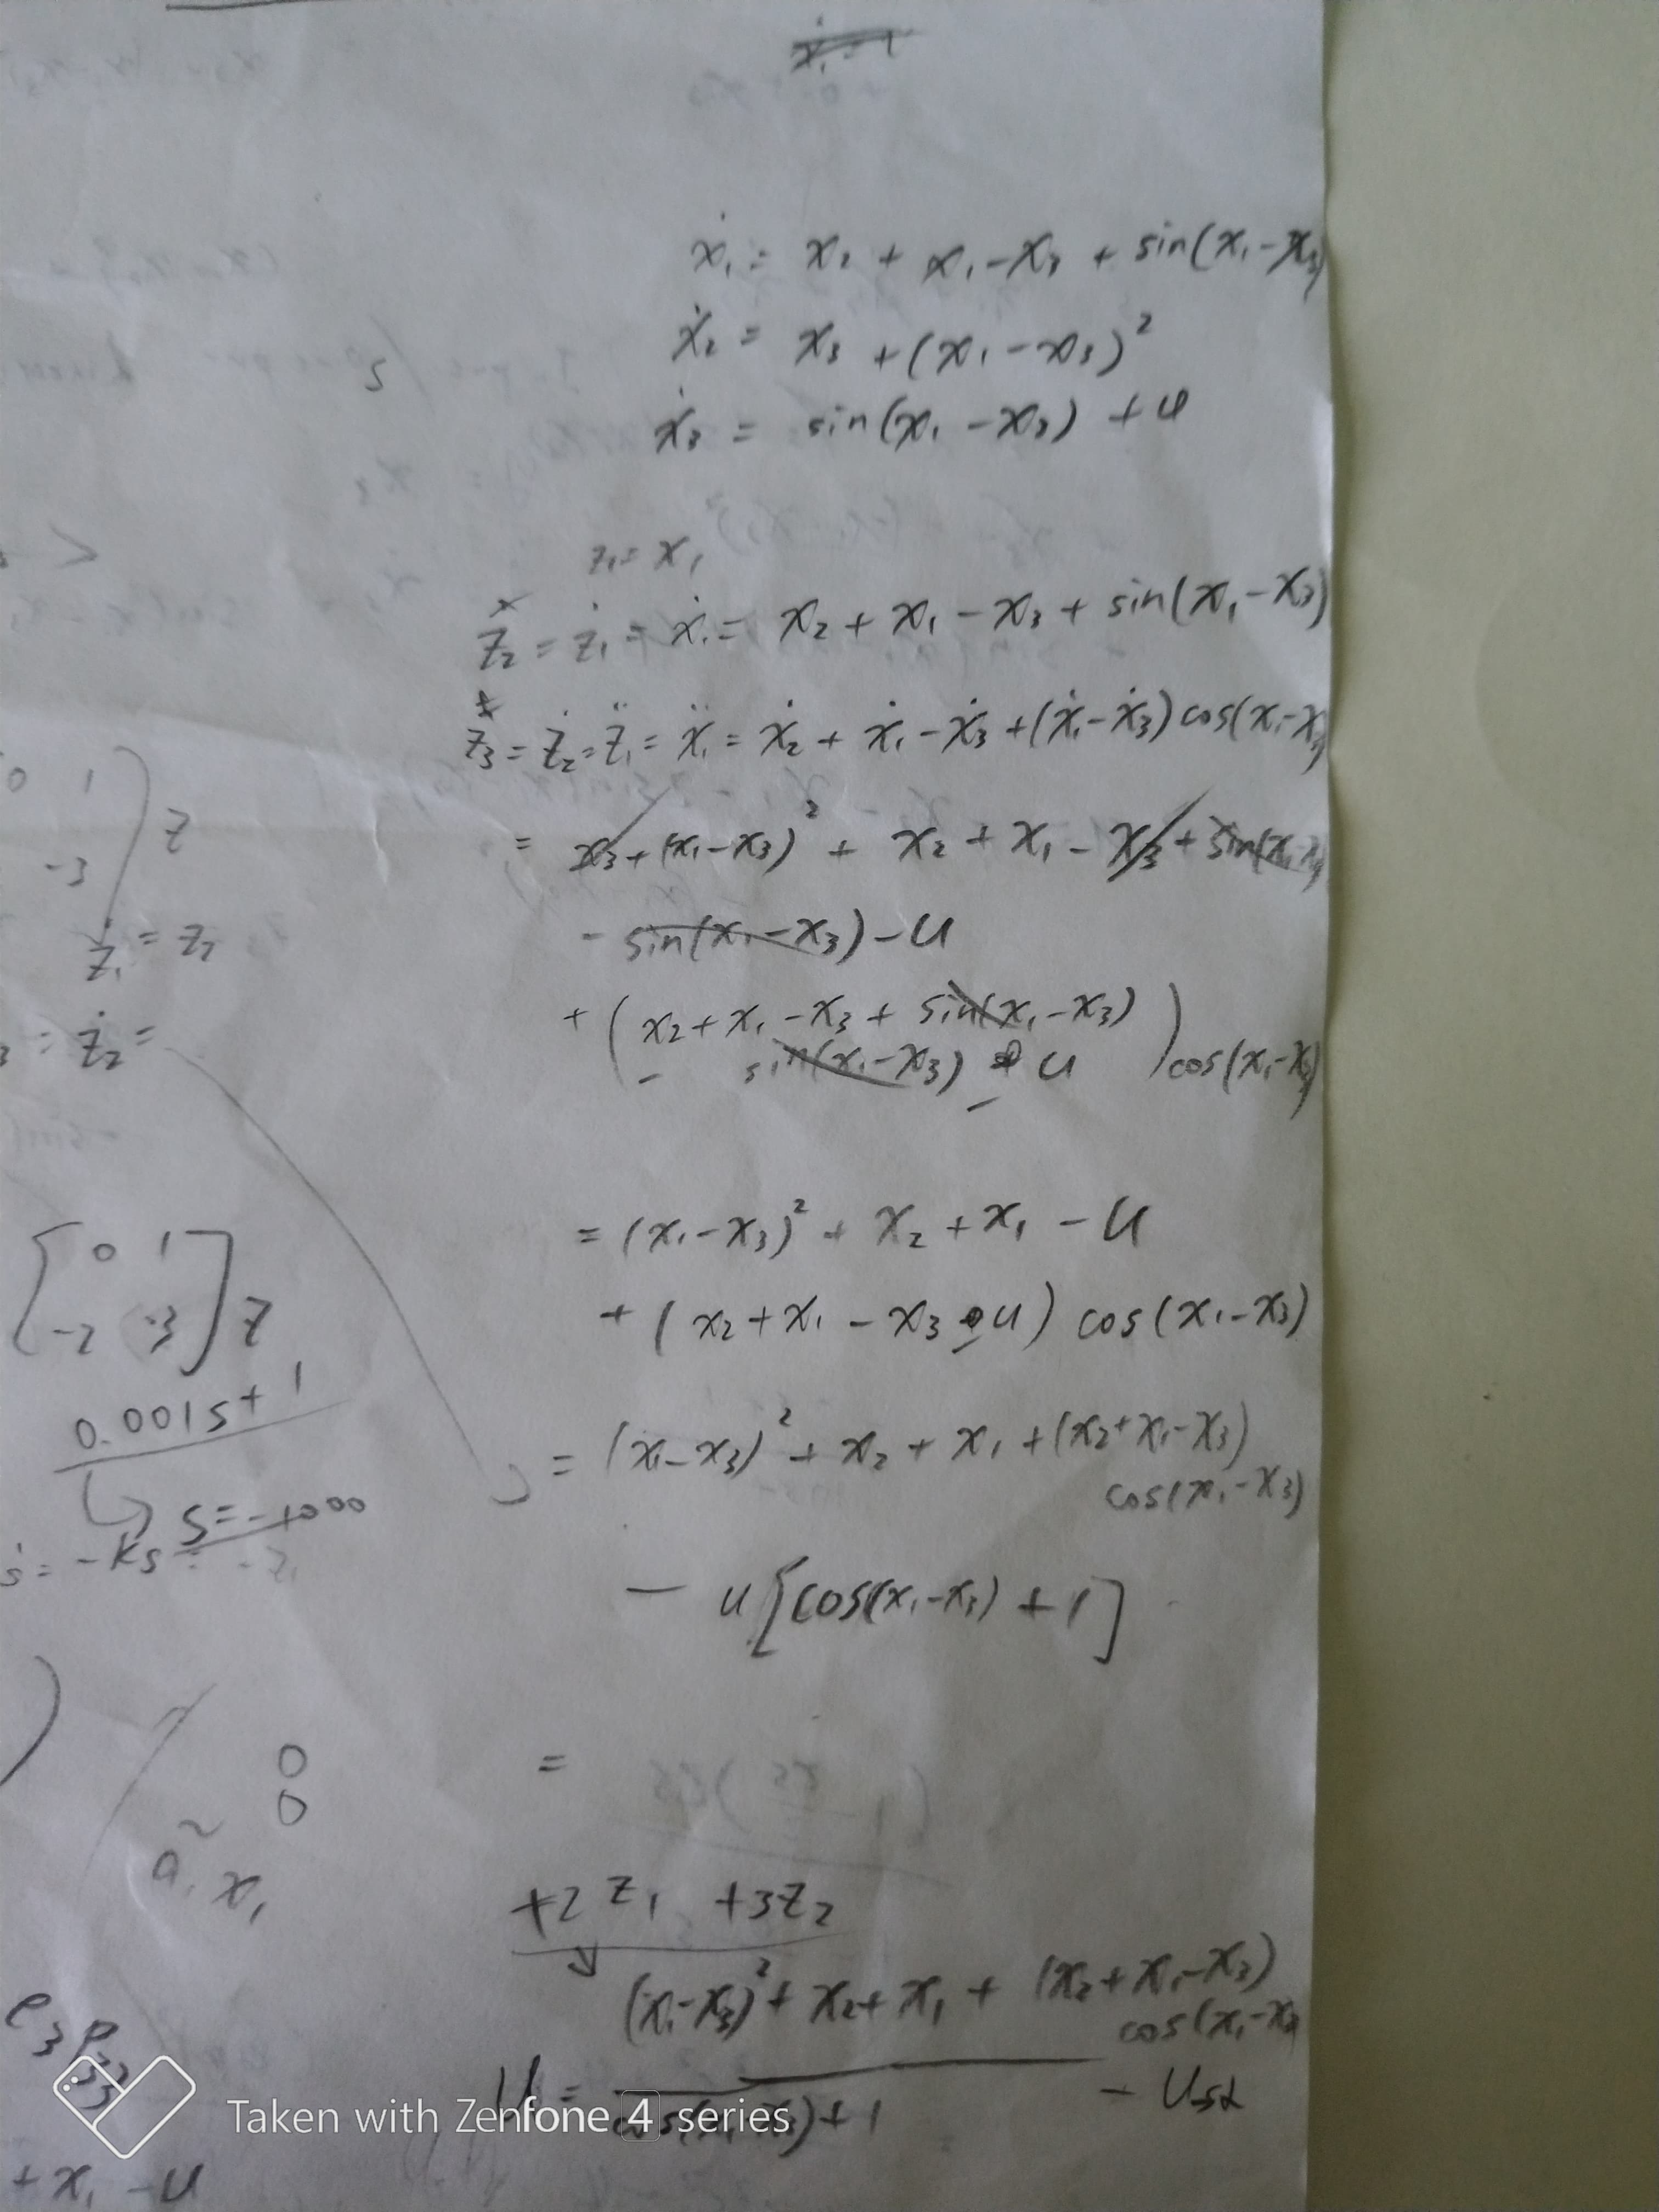 ẋ₁ = x₂ + x₁ - x₃ + sin(x₁ - x₃)
ẋ₂ = x₃ + (x₁ - x₃)²
ẋ₃ = sin(x₁ - x₃) + u
s
z₁ = x₁
z₂ = ż₁ = ẋ₁ = x₂ + x₁ - x₃ + sin(x₁ - x₃)
z₃ = ż₂ = z̈₁ = ẍ₁ = ẋ₂ + ẋ₁ - ẋ₃ + (ẋ₁ - ẋ₃) cos(x₁ - x₃)
= x₃ + (x₁ - x₃)² + x₂ + x₁ - x₃ + sin(x₁ - x₃)
- sin(x₁ - x₃) - u
+ ( x₂ + x₁ - x₃ + sin(x₁ - x₃)
- sin(x₁ - x₃) - u ) cos(x₁ - x₃)
= (x₁ - x₃)² + x₂ + x₁ - u
+ ( x₂ + x₁ - x₃ - u ) cos(x₁ - x₃)
= (x₁ - x₃)² + x₂ + x₁ + (x₂ + x₁ - x₃)
cos(x₁ - x₃)
- u [cos(x₁ - x₃) + 1]
=
+2 z₁ + 3z₂
(x₁ - x₃)² + x₂ + x₁ + (x₂ + x₁ - x₃)
cos(x₁ - x₃)
u = cos(x₁ - x₃) + 1
0 1
-3 ) z
ż₁ = z₂
= ż₂ =
[ 0 1
-2 -3 ] z
0.001s + 1
s = -1000
ṡ = -ks
0
0
ã₁ x₁
+ x₁ - u
Taken with Zenfone 4 series